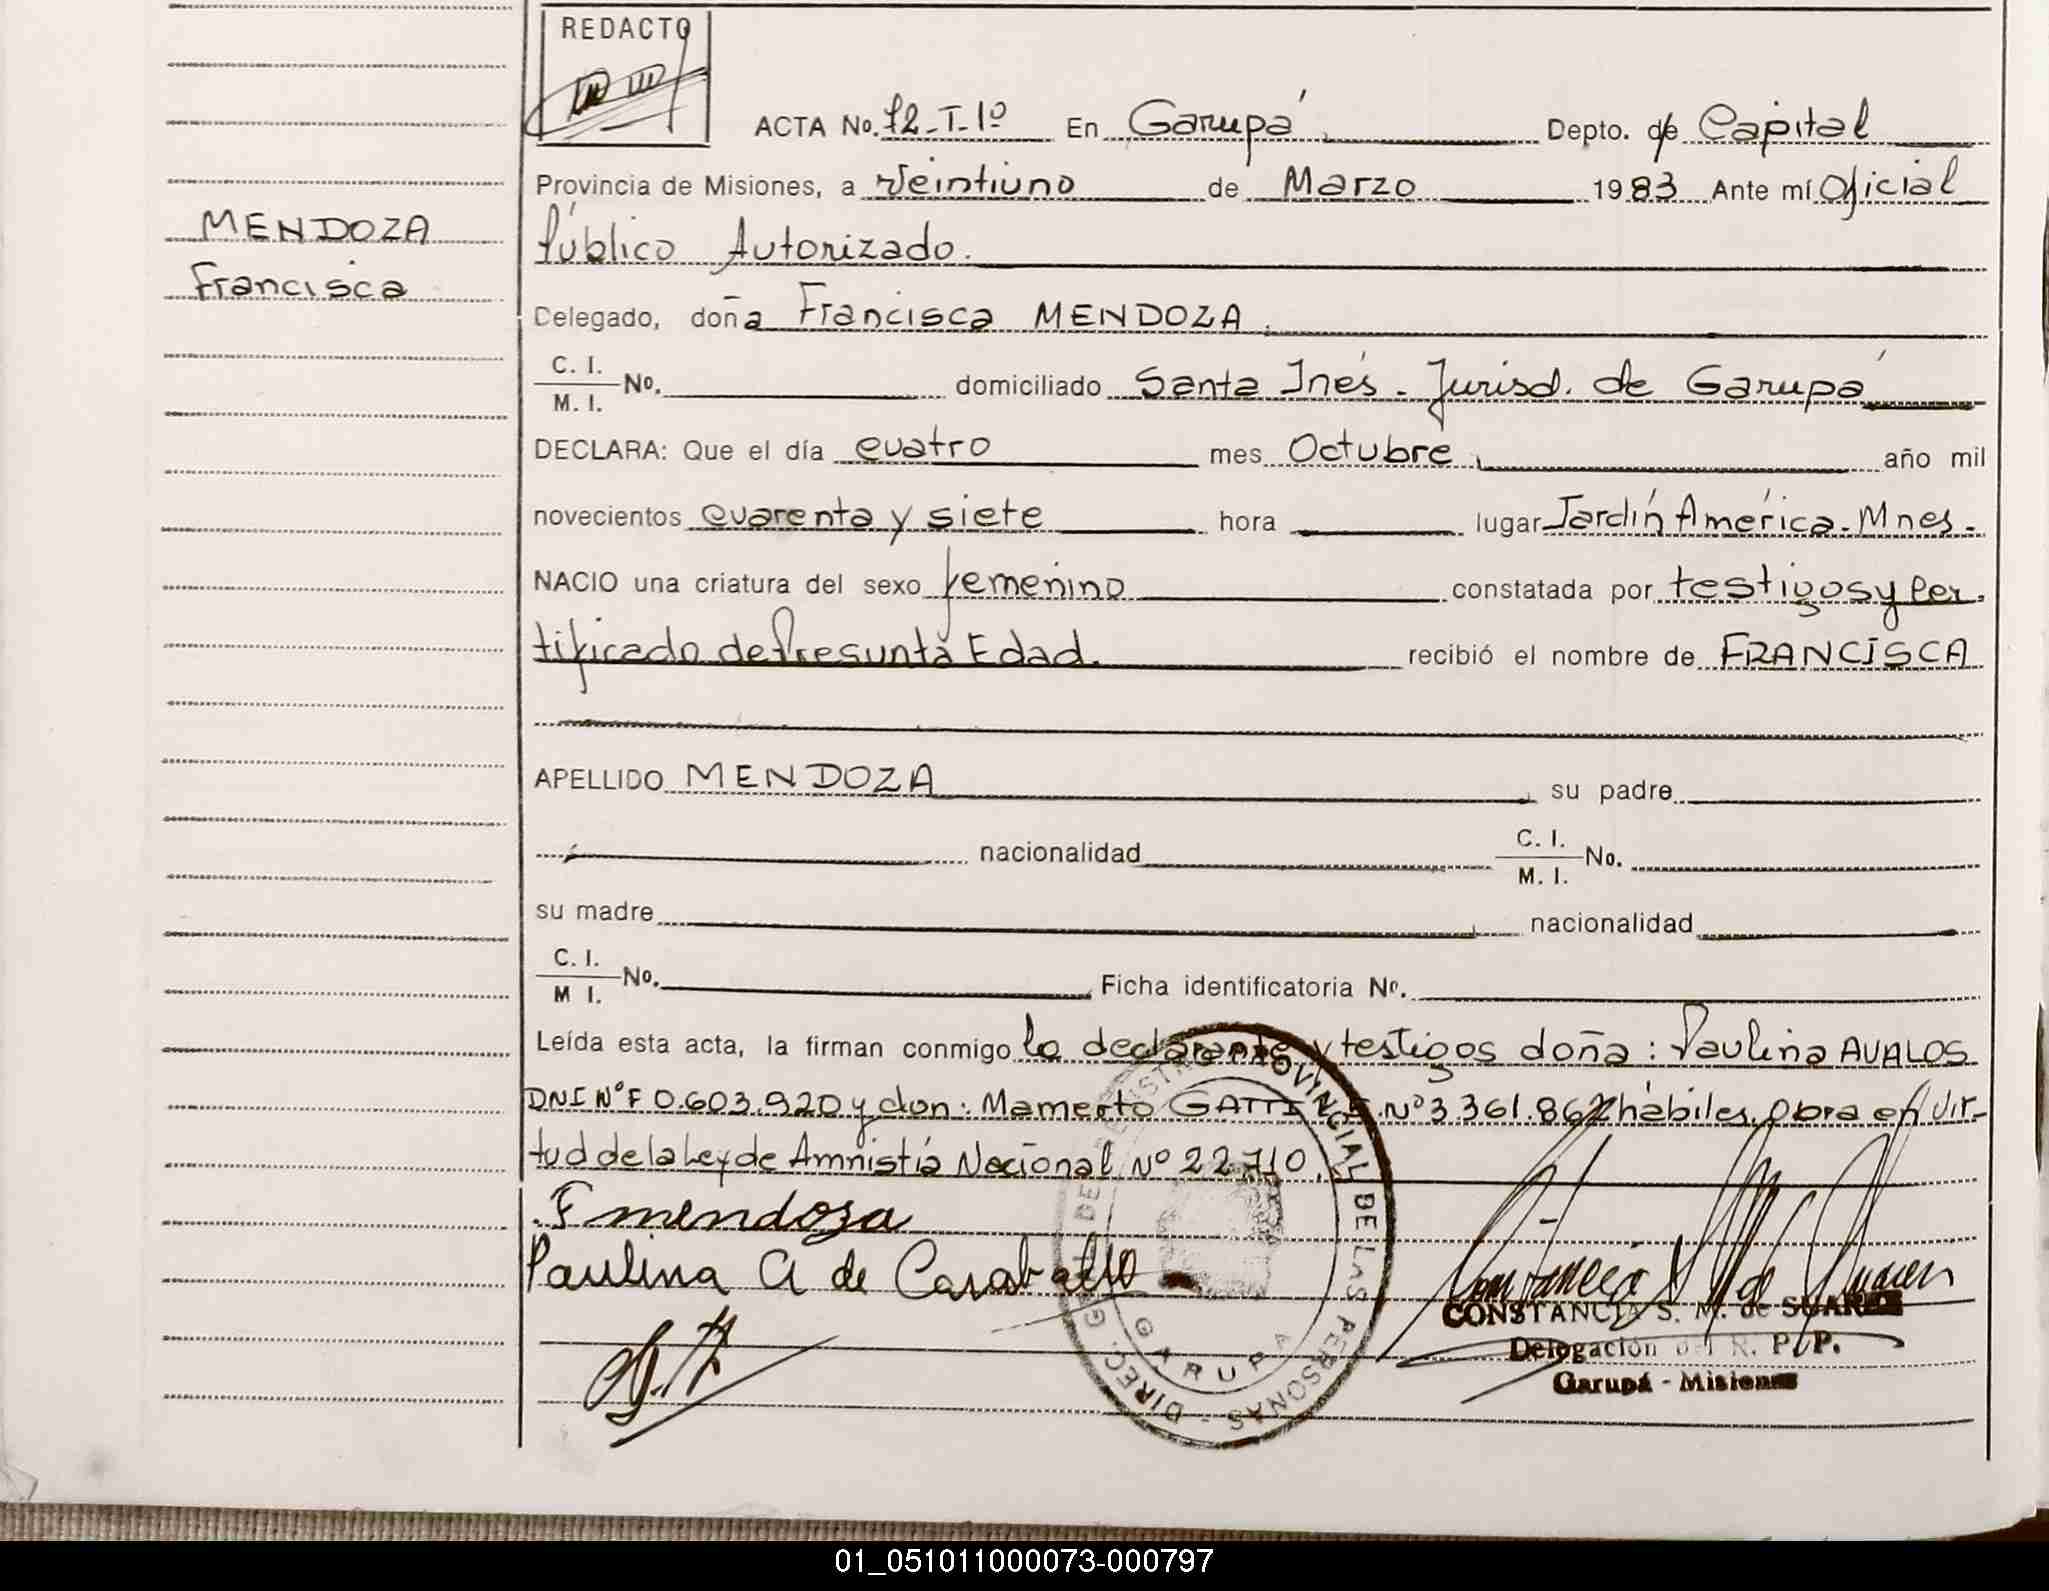 REDACTO
ACTA No. 72-I-1º En Garupá Depto. de Capital
Provincia de Misiones, a Veintiuno de Marzo 1983 Ante mí Oficial
Público Autorizado.
MENDOZA
Francisca
Delegado, doña Francisca MENDOZA
C. I.
M. I. No. domiciliado Santa Inés. Jurisd. de Garupá
DECLARA: Que el día cuatro mes Octubre año mil
novecientos cuarenta y siete hora lugar Jardín América. Mnes.
NACIO una criatura del sexo femenino constatada por testigos y Cer-
tificado de Presunta Edad. recibió el nombre de FRANCISCA
APELLIDO MENDOZA su padre
nacionalidad C. I.
M. I. No.
su madre nacionalidad
C. I.
M I. No. Ficha identificatoria No.
Leída esta acta, la firman conmigo la declarante y testigos doña: Paulina AVALOS
DNI Nº F 0.603.920 y don: Mamerto GATTI Nº 3.361.862 hábiles. Obra en vir-
tud de la Ley de Amnistía Nacional Nº 22710.
F mendoza
Paulina A de Caraballo
DIREC. GRAL DE REGISTRO PROVINCIAL DE LAS PERSONAS -
GARUPA
CONSTANCIA S. M. de SUAREZ
Delegación del R. P. P.
Garupá - Misiones
01_051011000073-000797